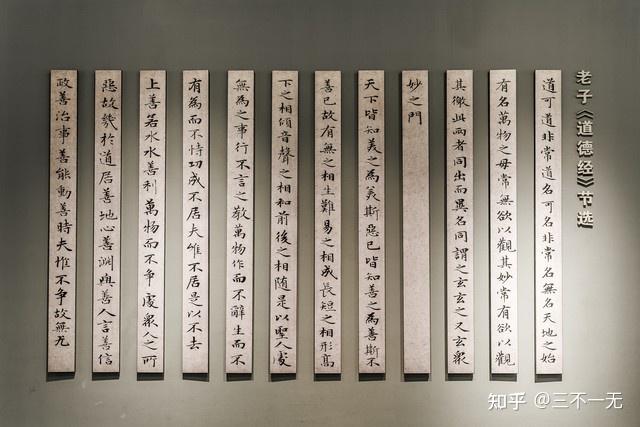 老子《道德经》节选
道可道非常道名可名非常名無名天地之始
有名萬物之母常無欲以觀其妙常有欲以觀
其徼此兩者同出而異名同謂之玄玄之又玄衆
妙之門
天下皆知美之為美斯惡已皆知善之為善斯不
善已故有無之相生難易之相成長短之相形高
下之相傾音聲之相和前後之相隨是以聖人處
無為之事行不言之教萬物作而不辭生而不
有為而不恃功成不居夫惟不居是以不去
上善若水水善利萬物而不争處衆人之所
惡故幾於道居善地心善淵與善人言善信
政善治事善能動善時夫惟不争故無尤
知乎 @三不一无